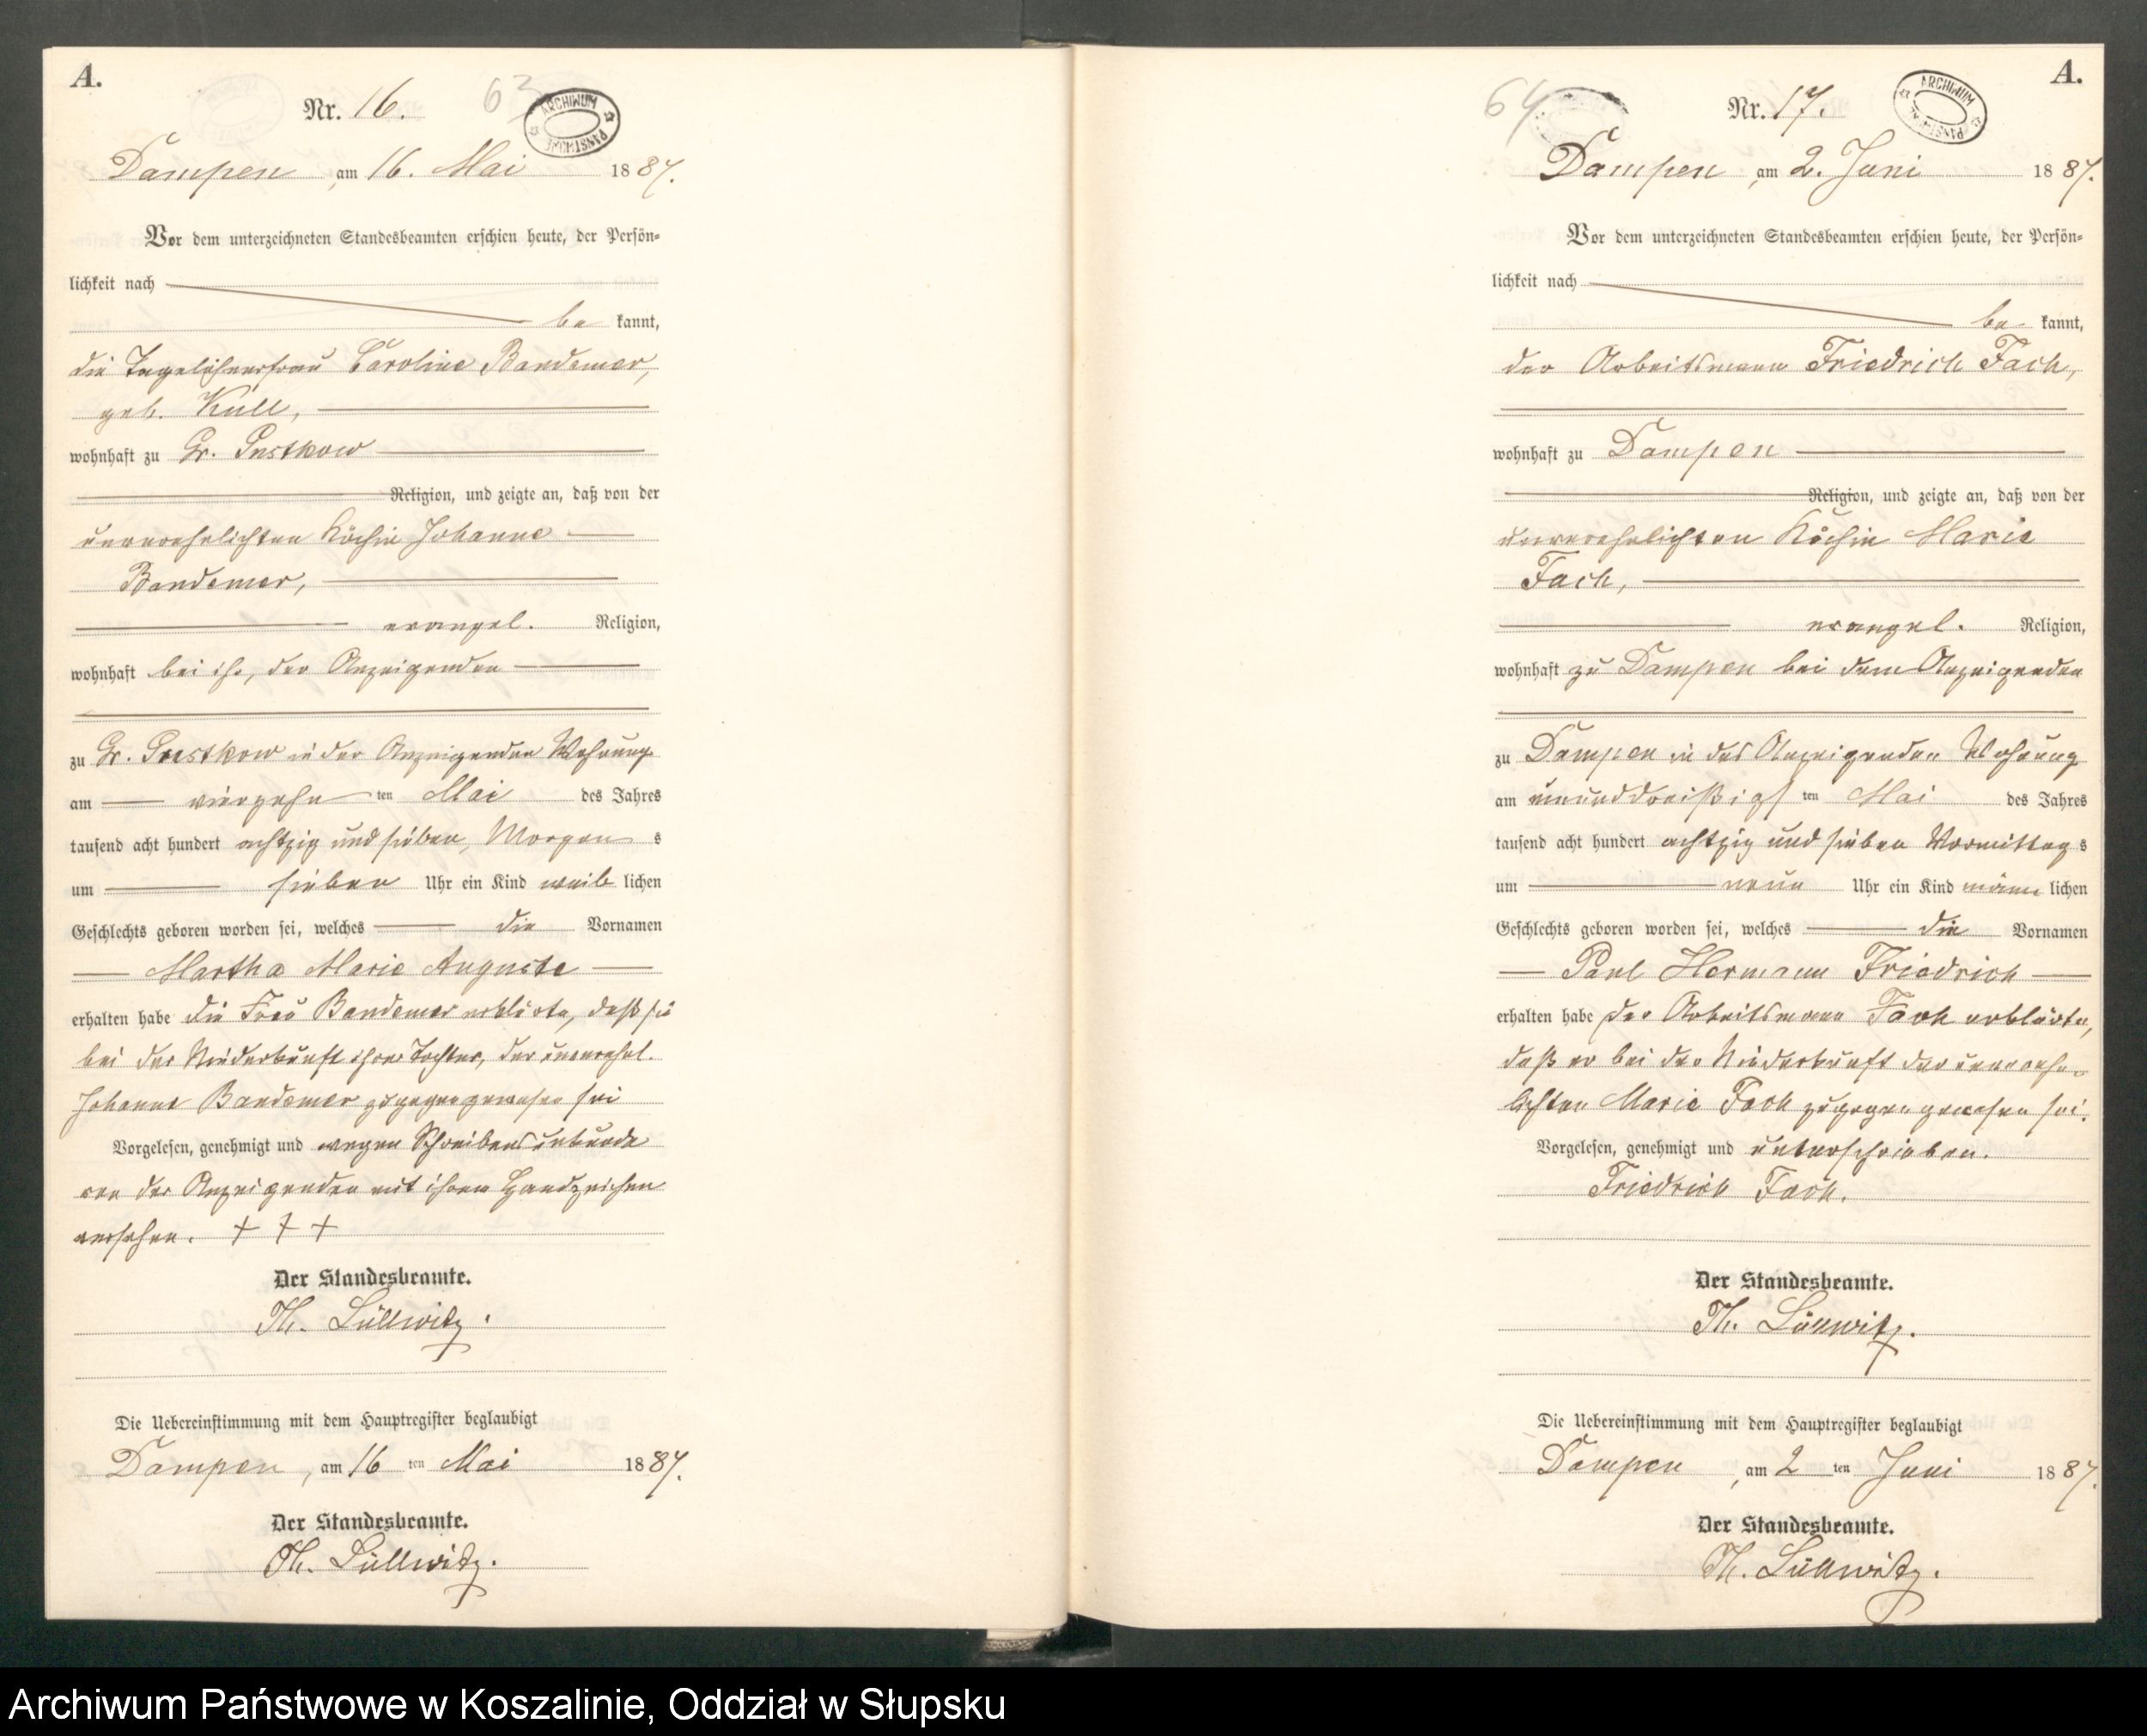 A.
Nr. 16.
63
ARCHIWUM PAŃSTWOWE
Dampen, am 16. Mai 1887.
Vor dem unterzeichneten Standesbeamten erschien heute, der Persön-
lichkeit nach
be kannt,
die Tagelöhnerfrau Caroline Bandemer,
geb. Küll,
wohnhaft zu Gr. Pustkow
Religion, und zeigte an, daß von der
unverehelichten Köchin Johanne
Bandemer,
evangel. Religion,
wohnhaft bei ihr, der Anzeigenden
zu Gr. Pustkow in der Anzeigenden Wohnung
am vierzehn ten Mai des Jahres
tausend acht hundert achtzig und sieben, Morgen s
um sieben Uhr ein Kind weib lichen
Geschlechts geboren worden sei, welches die Vornamen
Martha Marie Auguste
erhalten habe die Frau Bandemer erklärte, daß sie
bei der Niederkunft ihrer Tochter, der unverehel.
Johanne Bandemer zugegen gewesen sei
Vorgelesen, genehmigt und wegen Schreibensunkunde
von der Anzeigenden mit ihrem Handzeichen
versehen. + + +
Der Standesbeamte.
Th. Lüllwitz.
Die Uebereinstimmung mit dem Hauptregister beglaubigt
Dampen, am 16 ten Mai 1887.
Der Standesbeamte.
Th. Lüllwitz.
A.
64
Nr. 17.
ARCHIWUM PAŃSTWOWE
Dampen, am 2. Juni 1887.
Vor dem unterzeichneten Standesbeamten erschien heute, der Persön-
lichkeit nach
be kannt,
der Arbeitsmann Friedrich Fach,
wohnhaft zu Dampen
Religion, und zeigte an, daß von der
unverehelichten Köchin Marie
Fach,
evangel. Religion,
wohnhaft zu Dampen bei dem Anzeigenden
zu Dampen in des Anzeigenden Wohnung
am einunddreißigs ten Mai des Jahres
tausend acht hundert achtzig und sieben Vormittag s
um neun Uhr ein Kind männ lichen
Geschlechts geboren worden sei, welches die Vornamen
Paul Hermann Friedrich
erhalten habe der Arbeitsmann Fach erklärte,
daß er bei der Niederkunft der unverehe-
lichten Marie Fach zugegen gewesen sei.
Vorgelesen, genehmigt und unterschrieben.
Friedrich Fach.
Der Standesbeamte.
Th. Lüllwitz.
Die Uebereinstimmung mit dem Hauptregister beglaubigt
Dampen, am 2 ten Juni 1887.
Der Standesbeamte.
Th. Lüllwitz.
Archiwum Państwowe w Koszalinie, Oddział w Słupsku